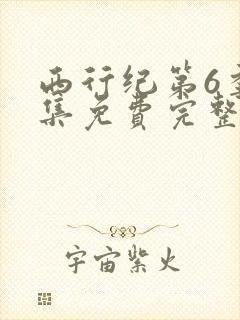 西行纪第6季
集免费完整
宇宙紫火